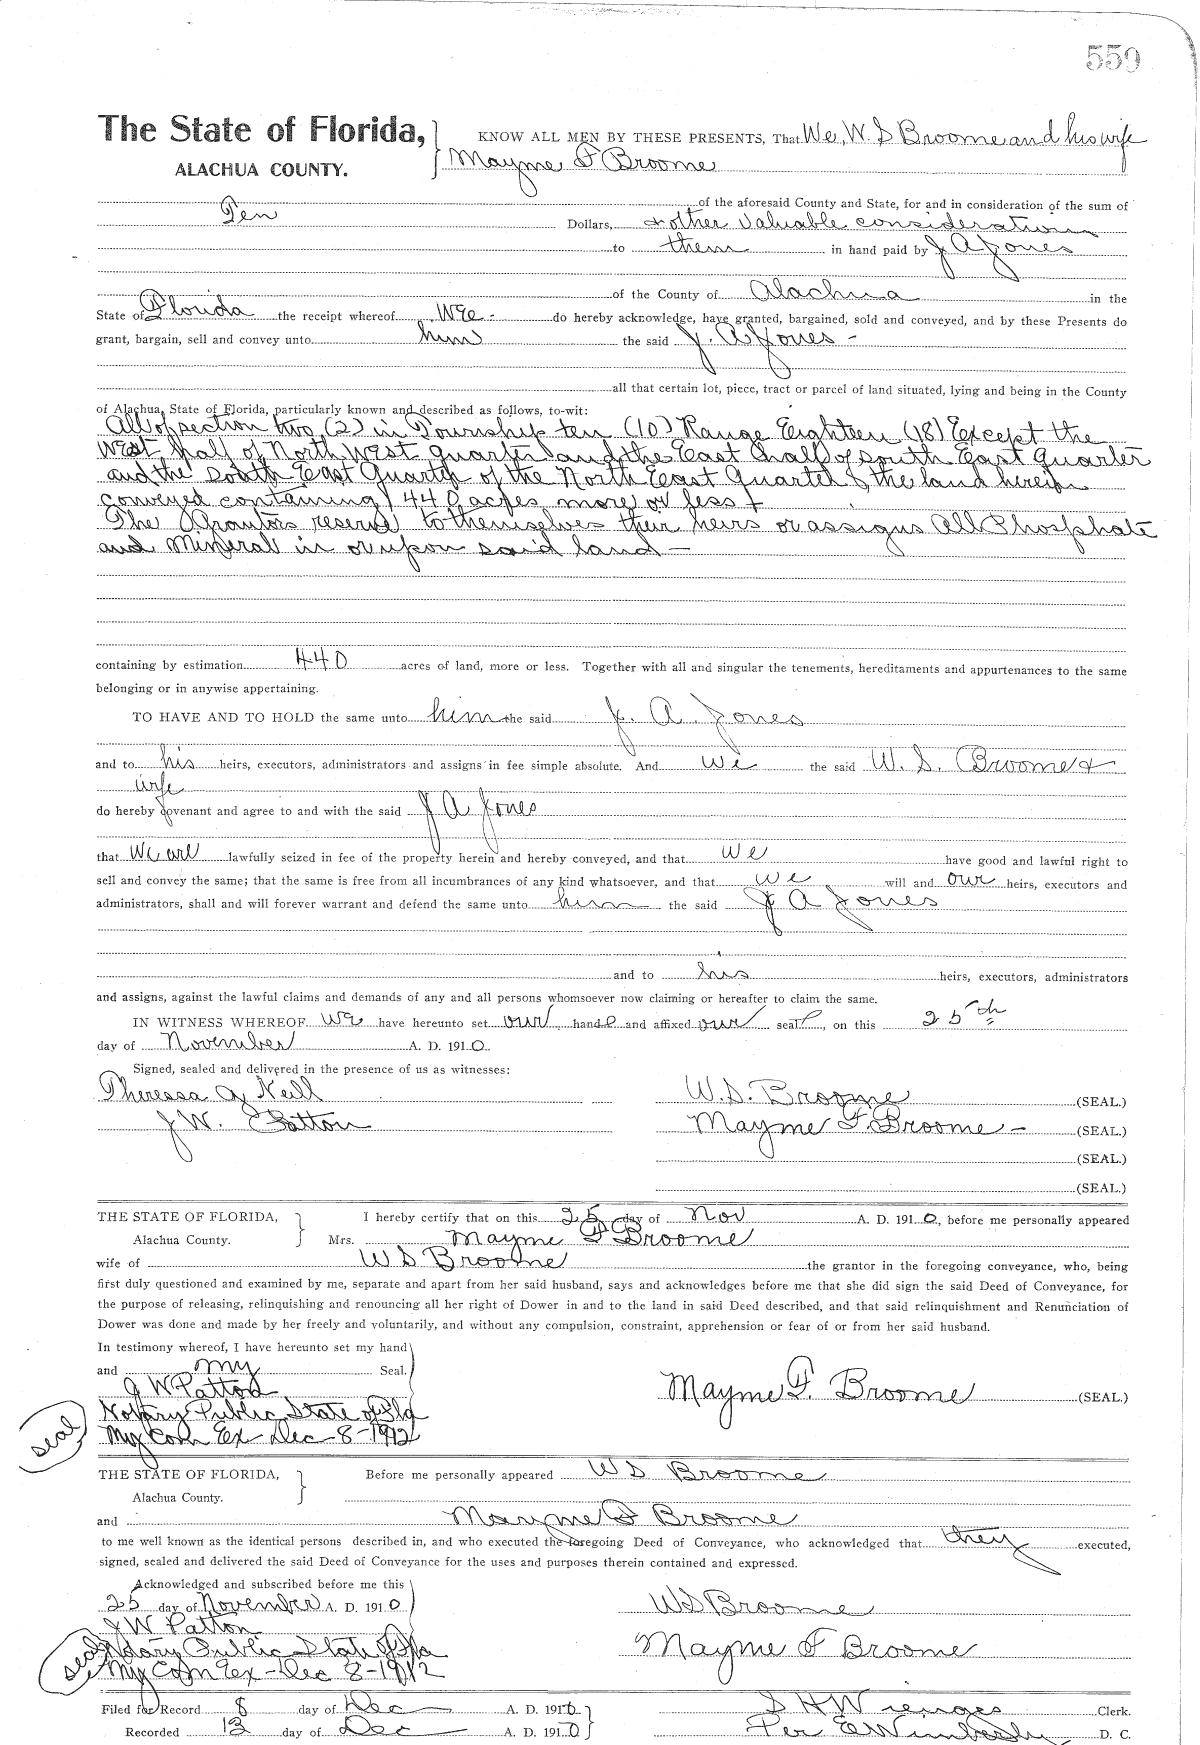 559
The State of Florida, KNOW ALL MEN BY THESE PRESENTS, That We, W. S Broome and his wife
ALACHUA COUNTY. Mayme F Broome
of the aforesaid County and State, for and in consideration of the sum of
Ten Dollars, + other valuable considerations
to them in hand paid by J A Jones
of the County of Alachua in the
State of Florida the receipt whereof We - do hereby acknowledge, have granted, bargained, sold and conveyed, and by these Presents do
grant, bargain, sell and convey unto him the said J. A Jones -
all that certain lot, piece, tract or parcel of land situated, lying and being in the County
of Alachua, State of Florida, particularly known and described as follows, to-wit:
All of section two (2) in Township ten (10) Range Eighteen (18) Except the
West half of North West quarter and the East half of south East quarter
and the south East Quarter of the North East Quarter & the land herein
conveyed containing 440 acres more or less +
The Grantors reserve to themselves their heirs or assigns All Phosphate
and Mineral in or upon said land -
containing by estimation 440 acres of land, more or less. Together with all and singular the tenements, hereditaments and appurtenances to the same
belonging or in anywise appertaining.
TO HAVE AND TO HOLD the same unto him the said J. A. Jones
and to his heirs, executors, administrators and assigns in fee simple absolute. And we the said W. S. Broome +
wife
do hereby covenant and agree to and with the said J A Jones
that We are lawfully seized in fee of the property herein and hereby conveyed, and that we have good and lawful right to
sell and convey the same; that the same is free from all incumbrances of any kind whatsoever, and that we will and our heirs, executors and
administrators, shall and will forever warrant and defend the same unto him the said J A Jones
and to his heirs, executors, administrators
and assigns, against the lawful claims and demands of any and all persons whomsoever now claiming or hereafter to claim the same.
IN WITNESS WHEREOF We have hereunto set our hands and affixed our seal, on this 25th
day of November A. D. 1910.
Signed, sealed and delivered in the presence of us as witnesses:
Theressa A Neill W. S. Broome (SEAL.)
J. W. Patton Mayme F. Broome - (SEAL.)
(SEAL.)
(SEAL.)
THE STATE OF FLORIDA, I hereby certify that on this 25 day of Nov A. D. 1910, before me personally appeared
Alachua County. Mrs. Mayme F Broome
wife of W S Broome the grantor in the foregoing conveyance, who, being
first duly questioned and examined by me, separate and apart from her said husband, says and acknowledges before me that she did sign the said Deed of Conveyance, for
the purpose of releasing, relinquishing and renouncing all her right of Dower in and to the land in said Deed described, and that said relinquishment and Renunciation of
Dower was done and made by her freely and voluntarily, and without any compulsion, constraint, apprehension or fear of or from her said husband.
In testimony whereof, I have hereunto set my hand
and my Seal.
J W Patton Mayme F. Broome (SEAL.)
Notary Public State of Fla
seal My Com Ex Dec - 8 - 1912
THE STATE OF FLORIDA, Before me personally appeared W S Broome
Alachua County.
and Mayme F Broome
to me well known as the identical persons described in, and who executed the foregoing Deed of Conveyance, who acknowledged that they executed,
signed, sealed and delivered the said Deed of Conveyance for the uses and purposes therein contained and expressed.
Acknowledged and subscribed before me this
25 day of November A. D. 1910 W S Broome
J W Patton
seal Notary Public State of Fla Mayme F Broome
My Com Ex - Dec 8 - 1912
Filed for Record 8 day of Dec A. D. 1910 S H Wienges Clerk.
Recorded 13 day of Dec A. D. 1910 Per E Wimberly D. C.